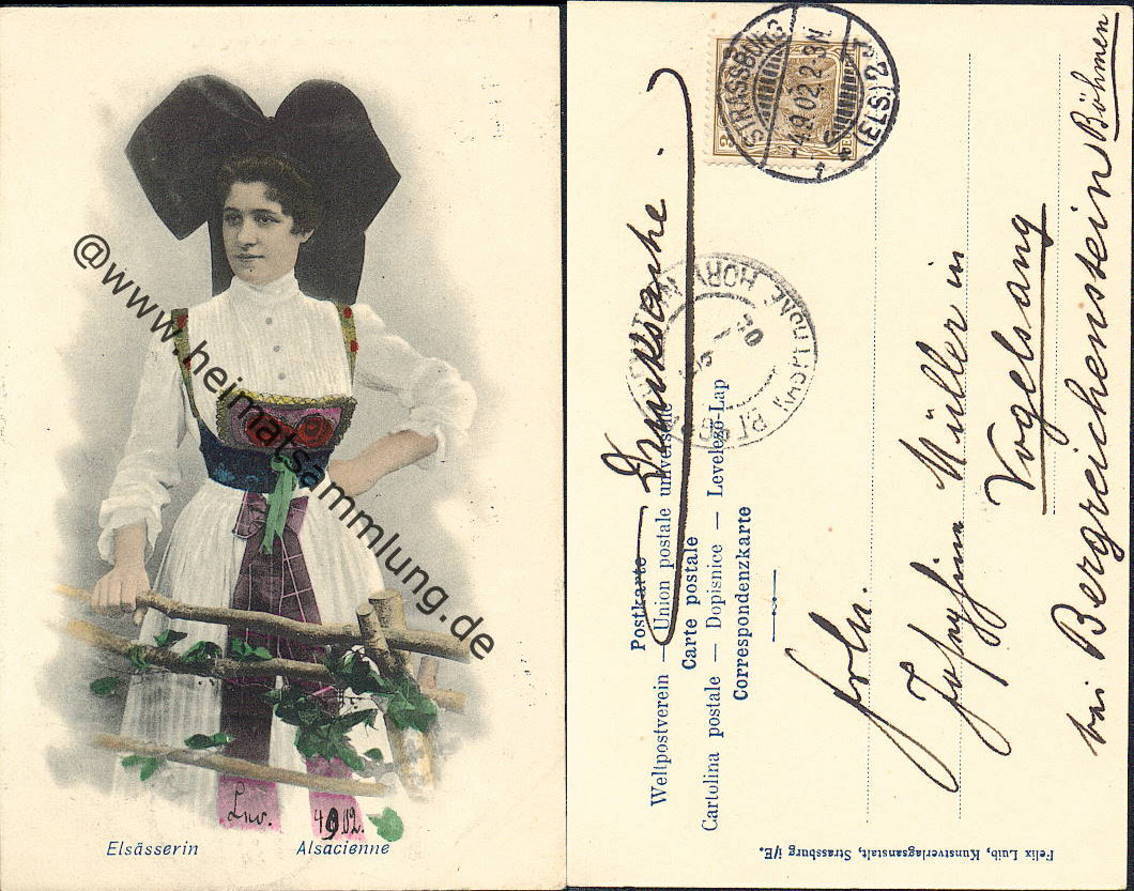 @www.heimatsammlung.de
Luv. 4902.
Elsässerin Alsacienne
STRASSBURG
(ELS) 2
-4.9.02.2-3N
Drucksache.
Postkarte
Weltpostverein — Union postale universelle
Carte postale
Cartolina postale — Dopisnice — Levelező-Lap
Correspondenzkarte
Frln.
Josefine Müller in
Vogelsang
bei Bergreichenstein Böhmen
Felix Luib, Kunstverlagsanstalt, Strassburg i/E.